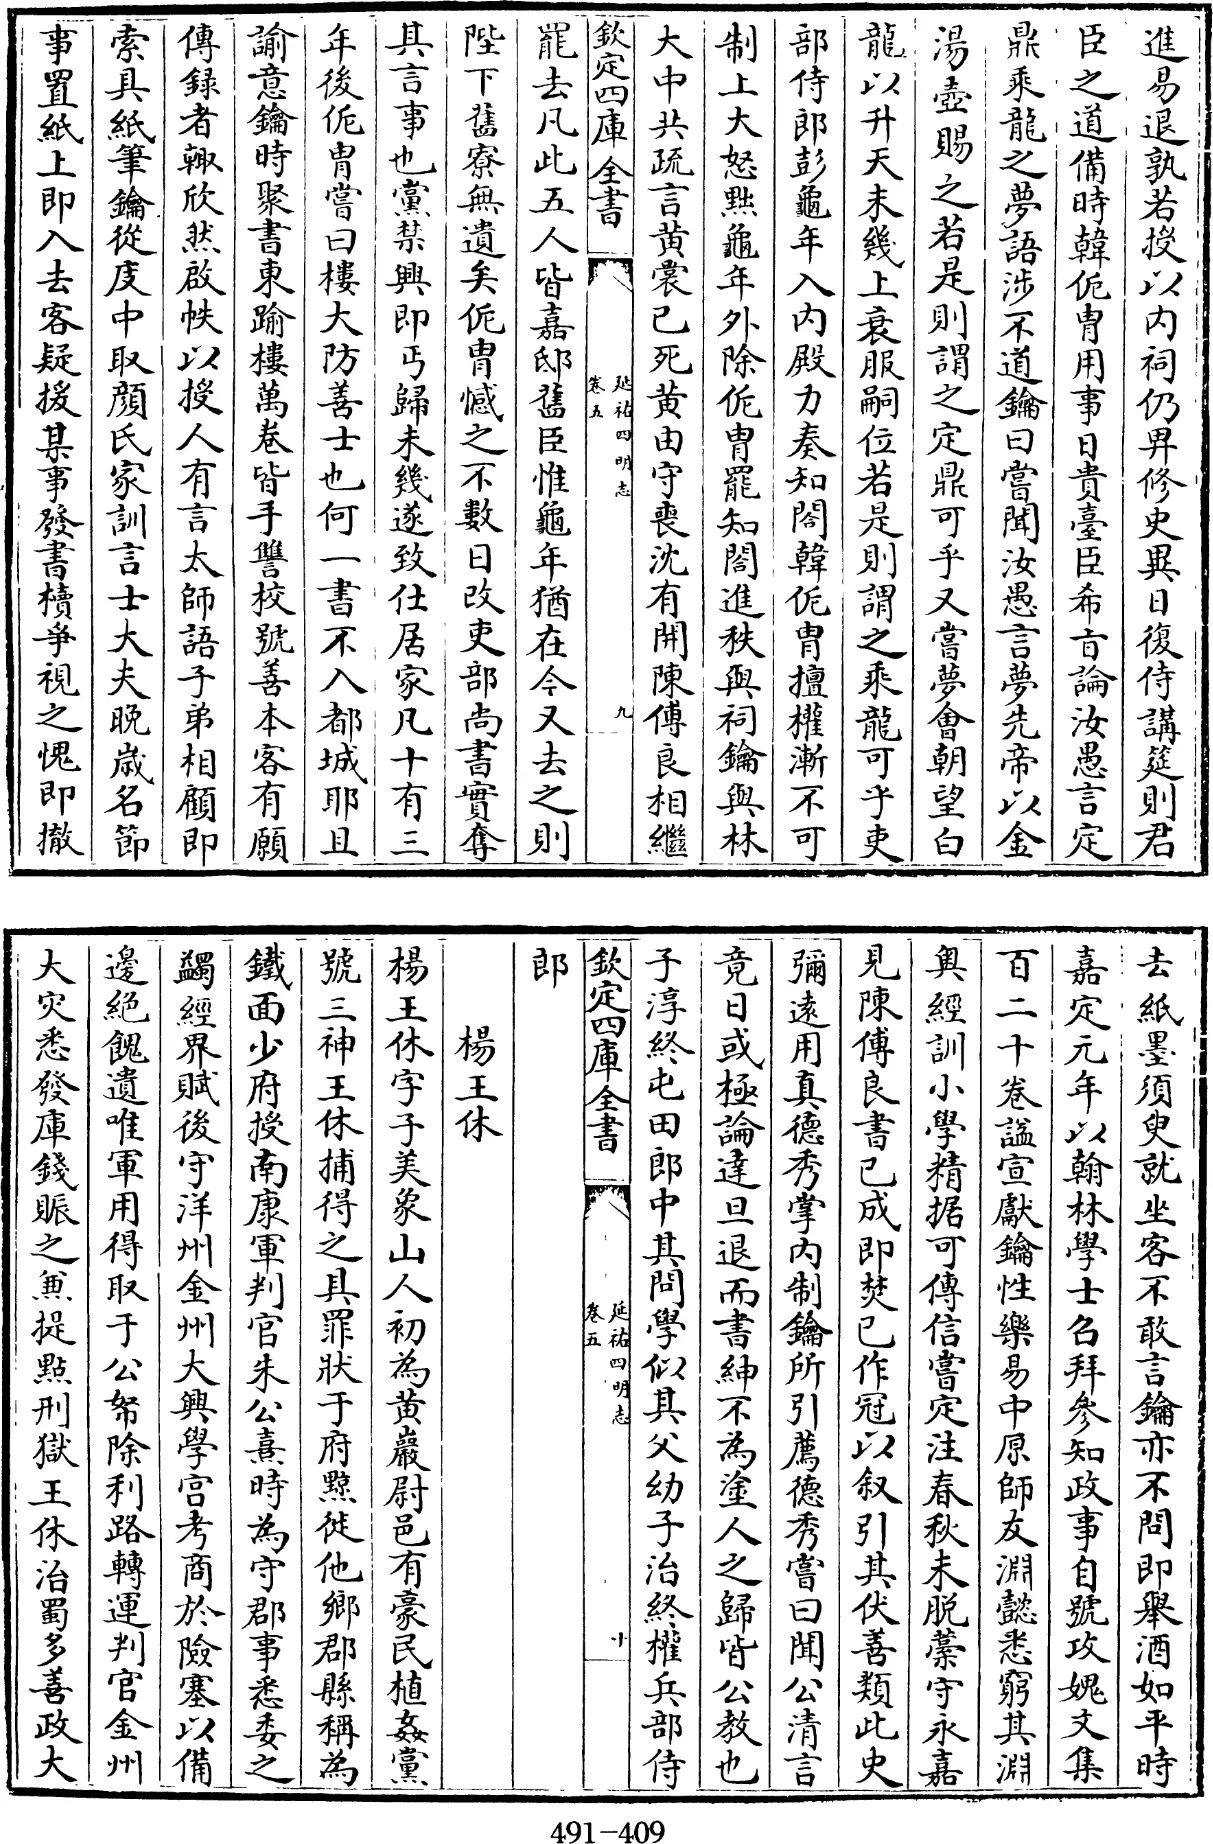 進易退孰若授以内祠仍畀修史異日復侍講筵則君
臣之道備時韓侂胄用事日貴臺臣希㫖論汝愚言定
鼎乘龍之夢語涉不道鑰曰嘗聞汝愚言夢先帝以金
湯壺賜之若是則謂之定鼎可乎又嘗夢會朝望白
龍以升天未幾上衰服嗣位若是則謂之乘龍可乎吏
部侍郎彭龜年入内殿力奏知閤韓侂胄擅權漸不可
制上大怒黜龜年外除侂胄罷知閤進秩與祠鑰與林
大中共疏言黄裳已死黄由守喪沈有開陳傅良相繼
欽定四庫全書
延祐四明志
卷五
九
罷去凡此五人皆嘉邸舊臣惟龜年猶在今又去之則
陛下舊寮無遺矣侂胄憾之不數日改吏部尚書實奪
其言事也黨禁興即丐歸未幾遂致仕居家凡十有三
年後侂胄嘗曰樓大防善士也何一書不入都城耶且
諭意鑰時聚書東踰樓萬卷皆手讐校號善本客有願
傳録者輙欣然啟帙以授人有言太師語子弟相顧即
索具紙筆鑰從庋中取顔氏家訓言士大夫晚歳名節
事置紙上即入去客疑援某事發書櫝爭視之愧即撤
去紙墨須臾就坐客不敢言鑰亦不問即舉酒如平時
嘉定元年以翰林學士召拜參知政事自號攻媿文集
百二十卷諡宣獻鑰性樂易中原師友淵懿悉窮其淵
奥經訓小學精据可傳信嘗定注春秋未脱藁守永嘉
見陳傅良書已成即焚已作冠以叙引其伏善類此史
彌遠用真德秀掌内制鑰所引薦德秀嘗曰聞公清言
竟日或極論達旦退而書紳不為塗人之歸皆公教也
子淳終屯田郎中其問學似其父幼子治終權兵部侍
欽定四庫全書
延祐四明志
卷五
十
郎
楊王休
楊王休字子美象山人初為黄巖尉邑有豪民植姦黨
號三神王休捕得之具罪狀于府黥徙他鄉郡縣稱為
鐵面少府授南康軍判官朱公熹時為守郡事悉委之
蠲經界賦後守洋州金州大興學宫考商於險塞以備
邊絶餽遺唯軍用得取于公帑除利路轉運判官金州
大灾悉發庫錢賑之兼提點刑獄王休治蜀多善政大
491-409